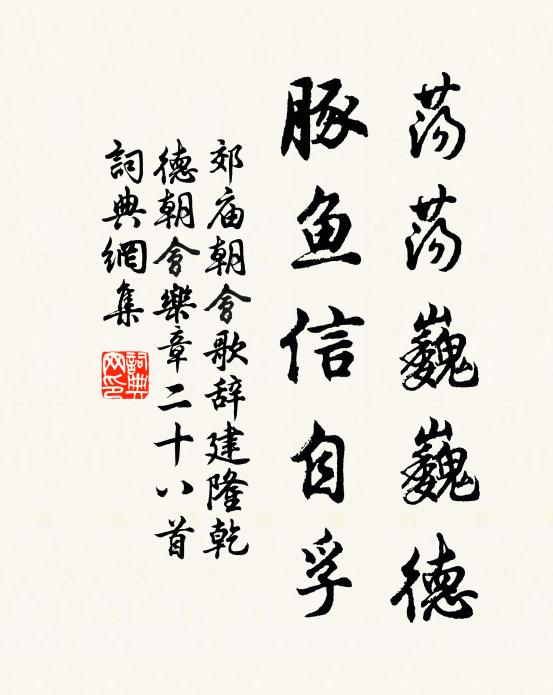 荡荡巍巍德
豚鱼信自孚
郊庙朝會歌辞建隆乾
德朝會樂章二十八首
詞典網集
詞典网印